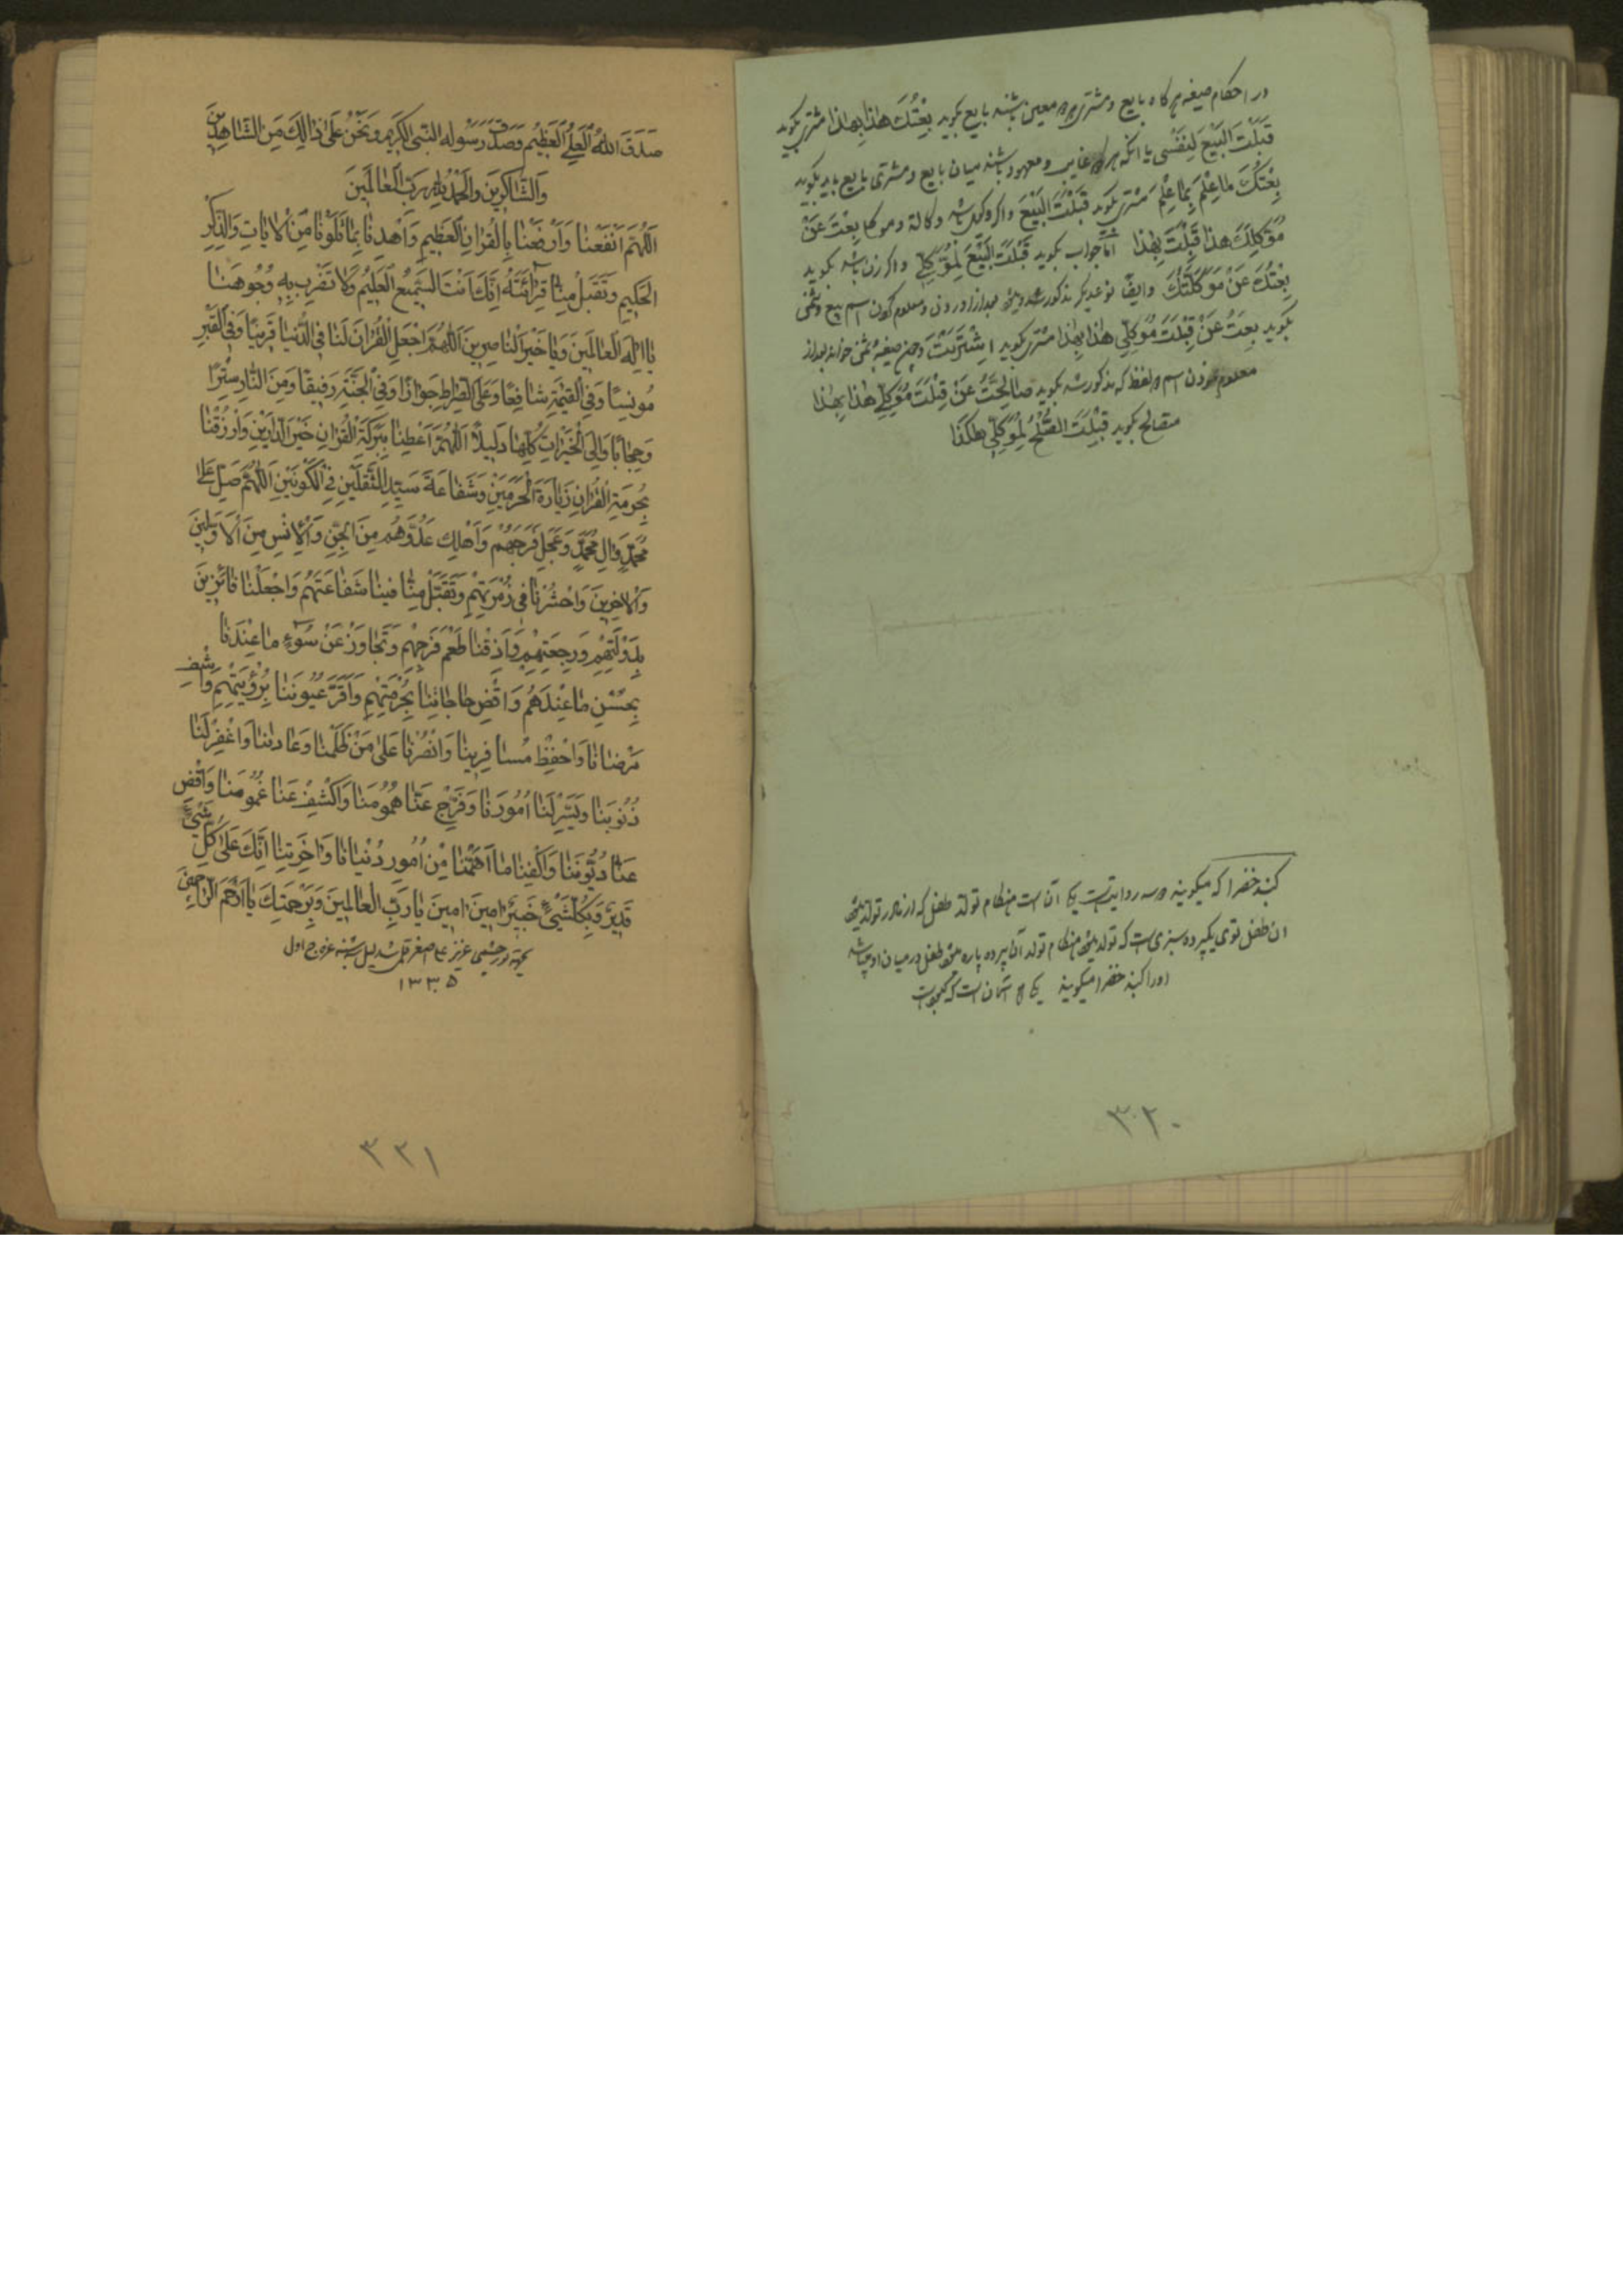 در احکام صیغه هرگاه بایع و مشتری هر دو معین باشند بایع بکوید بِعْتُكَ هٰذا بِهٰذا مشتری بکوید
قَبِلْتُ الْبَیْعَ لِنَفْسی یا انکه هر کاه غایب و معهود باشند میان بایع و مشتری بایع باید بکوید
بِعْتُكَ ما عُلِمَ بِما عُلِمَ مشتری بکوید قَبِلْتُ الْبَیْعَ و اکر وکیل باشد وکالة و موکلا بِعْتُ عَنْ
مُوَكِّلِكَ هذا قَبِلْتُ بِهٰذا اما جواب بکوید قَبِلْتُ الْبَیْعَ لِمُوَكِّلی و اکر زن باشد بکوید
بِعْتُكَ عَنْ مُوَكِّلَتِكَ وایضًا نوعدیکر مذکور شد و معلوم کردن اسم بیع و ثمن
بکوید بِعْتُ عَنْ قِبْلَتِ مُوَكِّلی هٰذا بِهٰذا مشتری بکوید اِشْتَرَیْتُ
معلوم نمودن اسم هر لفظ که مذکور شد بکوید صالَحْتُ عَنْ قِبْلَتِ مُوَكِّلی هٰذا بِهٰذا
متصالح بکوید قَبِلْتُ الصُّلْحَ لِمُوَكِّلی هٰکَذا
کنبد خضرا که میکویند در سه روایتست یکی آن است هنکام تولد طفل که از مادر تولد میشود
ان طفل توی یکپرده سبزی است که تولد میشود هنکام تولد آن پرده پاره میشود طفل در میان او میباشد
اورا کنبد خضرا میکویند یکی هم آسمان است که کبود است
۳۲۰
صَدَقَ اللهُ الْعَلِیُّ الْعَظیمُ وَصَدَقَ رَسُولُهُ النَّبِیُّ الْکَریمُ وَنَحْنُ عَلیٰ ذٰالِكَ مِنَ الشّاهِدینَ
وَالشّاکِرینَ وَالْحَمْدُ لِلّٰهِ رَبِّ الْعالَمینَ
اَللّٰهُمَّ اَنْفَعْنا وَاَرْفَعْنا بِالْقُرْانِ الْعَظیمِ وَاَهْدِنا بِما تَلَوْنا مِنَ الْاٰیاتِ وَالذِّکْرِ
الْحَکیمِ وَتَقَبَّلْ مِنّا قِرائَتَهُ اِنَّكَ اَنْتَ السَّمیعُ الْعَلیمُ وَلا تَضْرِبْ بِهِ وُجُوهَنا
یا اِلٰهَ الْعالَمینَ وَیا خَیْرَ النّاصِرینَ اَللّٰهُمَّ اجْعَلِ الْقُرْانَ لَنا فِی الدُّنْیا قَرینًا وَفِی الْقَبْرِ
مُونِسًا وَفِی الْقِیٰمَةِ شافِعًا وَعَلَی الصِّراطِ جَوازًا وَفِی الْجَنَّةِ رَفیقًا وَمِنَ النّارِ سِتْرًا
وَحِجابًا وَاِلَی الْخَیْراتِ کُلِّها دَلیلًا اَللّٰهُمَّ اَعْطِنا بِبَرَکَةِ الْقُرْانِ خَیْرَ الدّارَیْنِ وَارْزُقْنا
بِحُرْمَةِ الْقُرْانِ زِیارَةَ الْحَرَمَیْنِ وَشَفاعَةَ سَیِّدِ الثَّقَلَیْنِ فِی الْکَوْنَیْنِ اَللّٰهُمَّ صَلِّ عَلیٰ
مُحَمَّدٍ وَاٰلِ مُحَمَّدٍ وَعَجِّلْ فَرَجَهُمْ وَاَهْلِكْ عَدُوَّهُمْ مِنَ الْجِنِّ وَالْاِنْسِ مِنَ الْاَوَّلینَ
وَالْاٰخِرینَ وَاحْشُرْنا فی زُمْرَتِهِمْ وَتَقَبَّلْ مِنّا فینا شَفاعَتَهُمْ وَاجْعَلْنا فائِزینَ
بِدَوْلَتِهِمْ وَرِجْعَتِهِمْ وَاَذِقْنا طَعْمَ فَرَجِهِمْ وَتَجاوَزْ عَنْ سُوٓءِ ما عِنْدَنا
بِحُسْنِ ما عِنْدَهُمْ وَاقْضِ حاجاتِنا بِحُرْمَتِهِمْ وَاَقِرَّ عُیُونَنا بِرُؤْیَتِهِمْ وَاشْفِ
مَرْضانا وَاحْفِظْ مُسافِرینا وَانْصُرْنا عَلیٰ مَنْ ظَلَمَنا وَعادانا وَاغْفِرْ لَنا
ذُنُوبَنا وَیَسِّرْ لَنا اُمُورَنا وَفَرِّجْ عَنّا هُمُومَنا وَاکْشِفْ عَنّا غُمُومَنا وَاقْضِ
عَنّا دُیُونَنا وَاکْفِنا ما اَهَمَّنا مِنْ اُمُورِ دُنْیانا وَاٰخِرَتِنا اِنَّكَ عَلیٰ کُلِّ شَیْءٍ
قَدیرٌ وَبِکُلِّ شَیْءٍ خَبیرٌ اٰمینَ اٰمینَ یا رَبَّ الْعالَمینَ وَبِرَحْمَتِكَ یا اَرْحَمَ الرّاحِمینَ
بجهة نور چشمی عزیز علی اصغر قلمی شد لیل شنبه غره ج اول
۱۳۳۵
۳۲۱